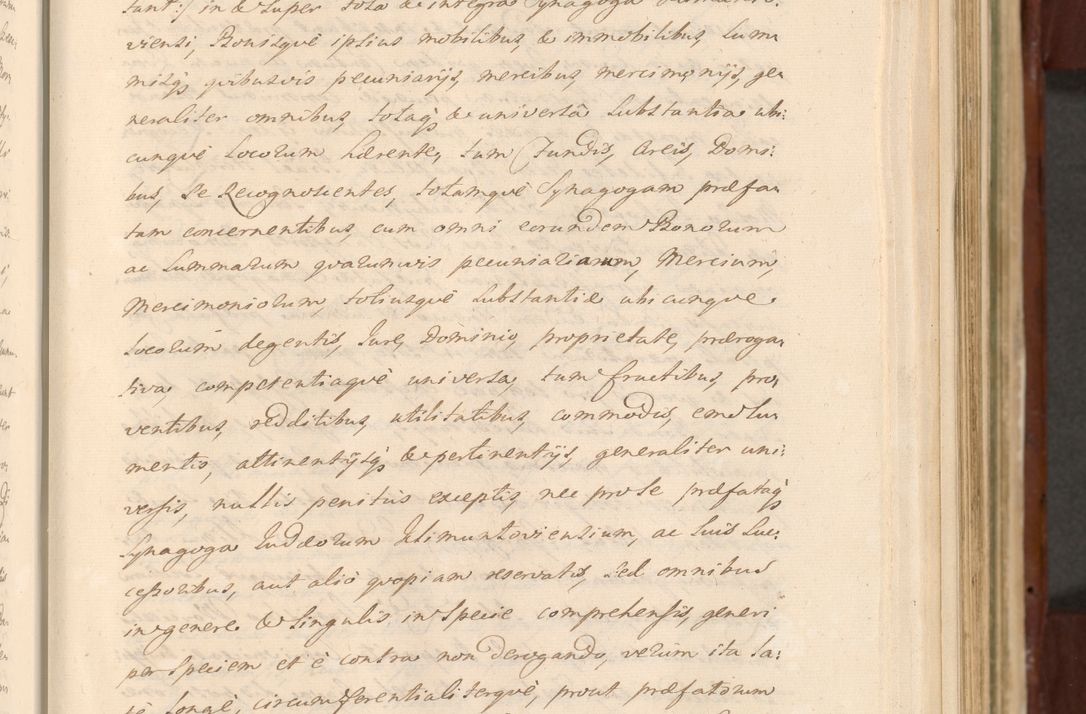 tant:/ in & super tota & integra Synagoga
viensi, Bonisquè ipsius mobilibus, & immobilibus, sum
misqs quibusvis pecuniarijs, mercibus, mercimonijs, ge
neraliter omnibus, totaqs & universâ substantia ubi
cunquè Locorum hærente, tum Fundis, Areis, Domi:
bus, se Recognoscentes, totamquè Synagogam præfa
tam concernentibus, cum omni eorundem Bonorum
ac summarum quarumvis pecuniariarum, Mercium,
Mercimoniorum, totiusquè substantiæ ubicunque
Locorum degentis, Jure, Dominio, proprietate, præroga
tiva, competentiaquè universa, tum fructibus, pro
ventibus, redditibus, utilitatibus, commodis, emolu
mentis, attinentijsqs & pertinentijs generaliter uni:
versis, nullis penitùs exceptis, nec pro se, præfataqs
Synagoga Judæorum Klimuntoviensium, ac suis suc:
cessoribus, aut alio quopiam reservatis, sed omnibus
in genere & singulis in specie comprehensis, generi
per speciem et è contra non derogando, verùm ita la:
tè longè, circumferentialiterquè, prout præfatorum